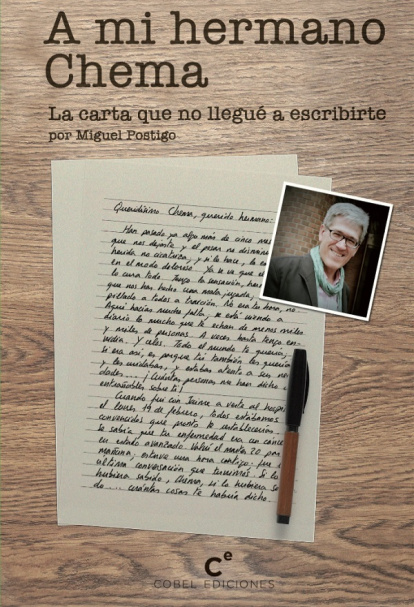 A mi hermano
Chema
La carta que no llegué a escribirte
por Miguel Postigo
Queridísimo Chema, querido hermano:
Han pasado ya algo más de cinco
que nos dejaste y el pesar no
herida no cicatriza, y si lo hace,
en el modo doloroso. Ya se va que el
lo cura todo. Tengo la sensación,
que nos han hecho una mala jugada,
pillado a todos a traición. No era tu hora, no
Aquí hacías mucha falta, y está siendo a
diario lo mucho que te echan de menos miles
y miles de personas. A veces hasta tengo
Y celos. Todo el mundo te quería,
si era así, es porque tú también les querías
y les cuidabas, y estabas atento a sus
¡Cuántas personas me han dicho
entrañables sobre ti!
Cuando fui con Jaime a verte al
el lunes 19 de febrero, todos estábamos
convencidos que pronto te
Se sabía que tu enfermedad era un cáncer
en estado avanzado. Volví el martes 20 por
mañana; estuve una hora contigo: fue
última conversación que tuvimos. Si lo
hubiera sabido, Chema, si lo hubiera
cuántas cosas te habría dicho.
Ce
COBEL EDICIONES